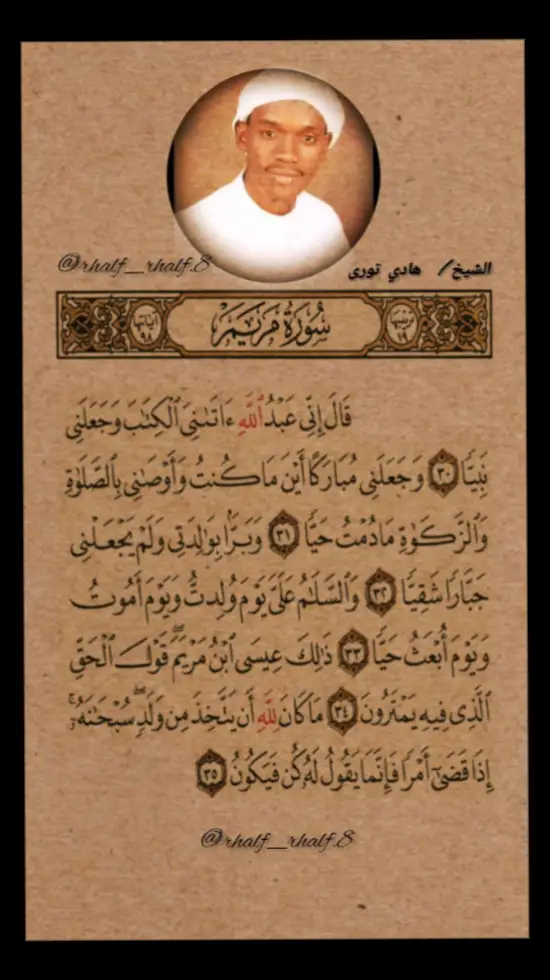 @rhalf_rhalf.8
الشيخ/ هادي توري
ترتيبها ١٩
سُورَةُ مَرْيَمَ
آياتها ٩٨
قَالَ إِنِّي عَبْدُ ٱللَّهِ ءَاتَىٰنِيَ ٱلْكِتَٰبَ وَجَعَلَنِي
نَبِيًّا ٣٠ وَجَعَلَنِي مُبَارَكًا أَيْنَ مَا كُنتُ وَأَوْصَٰنِي بِٱلصَّلَوٰةِ
وَٱلزَّكَوٰةِ مَا دُمْتُ حَيًّا ٣١ وَبَرًّۢا بِوَٰلِدَتِي وَلَمْ يَجْعَلْنِي
جَبَّارًا شَقِيًّا ٣٢ وَٱلسَّلَٰمُ عَلَيَّ يَوْمَ وُلِدتُّ وَيَوْمَ أَمُوتُ
وَيَوْمَ أُبْعَثُ حَيًّا ٣٣ ذَٰلِكَ عِيسَى ٱبْنُ مَرْيَمَ ۖ قَوْلَ ٱلْحَقِّ
ٱلَّذِي فِيهِ يَمْتَرُونَ ٣٤ مَا كَانَ لِلَّهِ أَن يَتَّخِذَ مِن وَلَدٍ ۖ سُبْحَٰنَهُۥٓ ۚ
إِذَا قَضَىٰٓ أَمْرًا فَإِنَّمَا يَقُولُ لَهُۥ كُن فَيَكُونُ ٣٥
@rhalf_rhalf.8